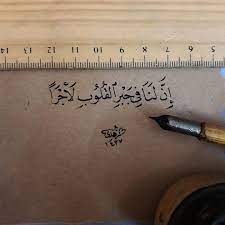 14 13 12 11 10 9 8 7 6 5
إِنَّ لَنَا فِي جَبْرِ ٱلْقُلُوبِ لَأَجْرًا
١٤٣٧